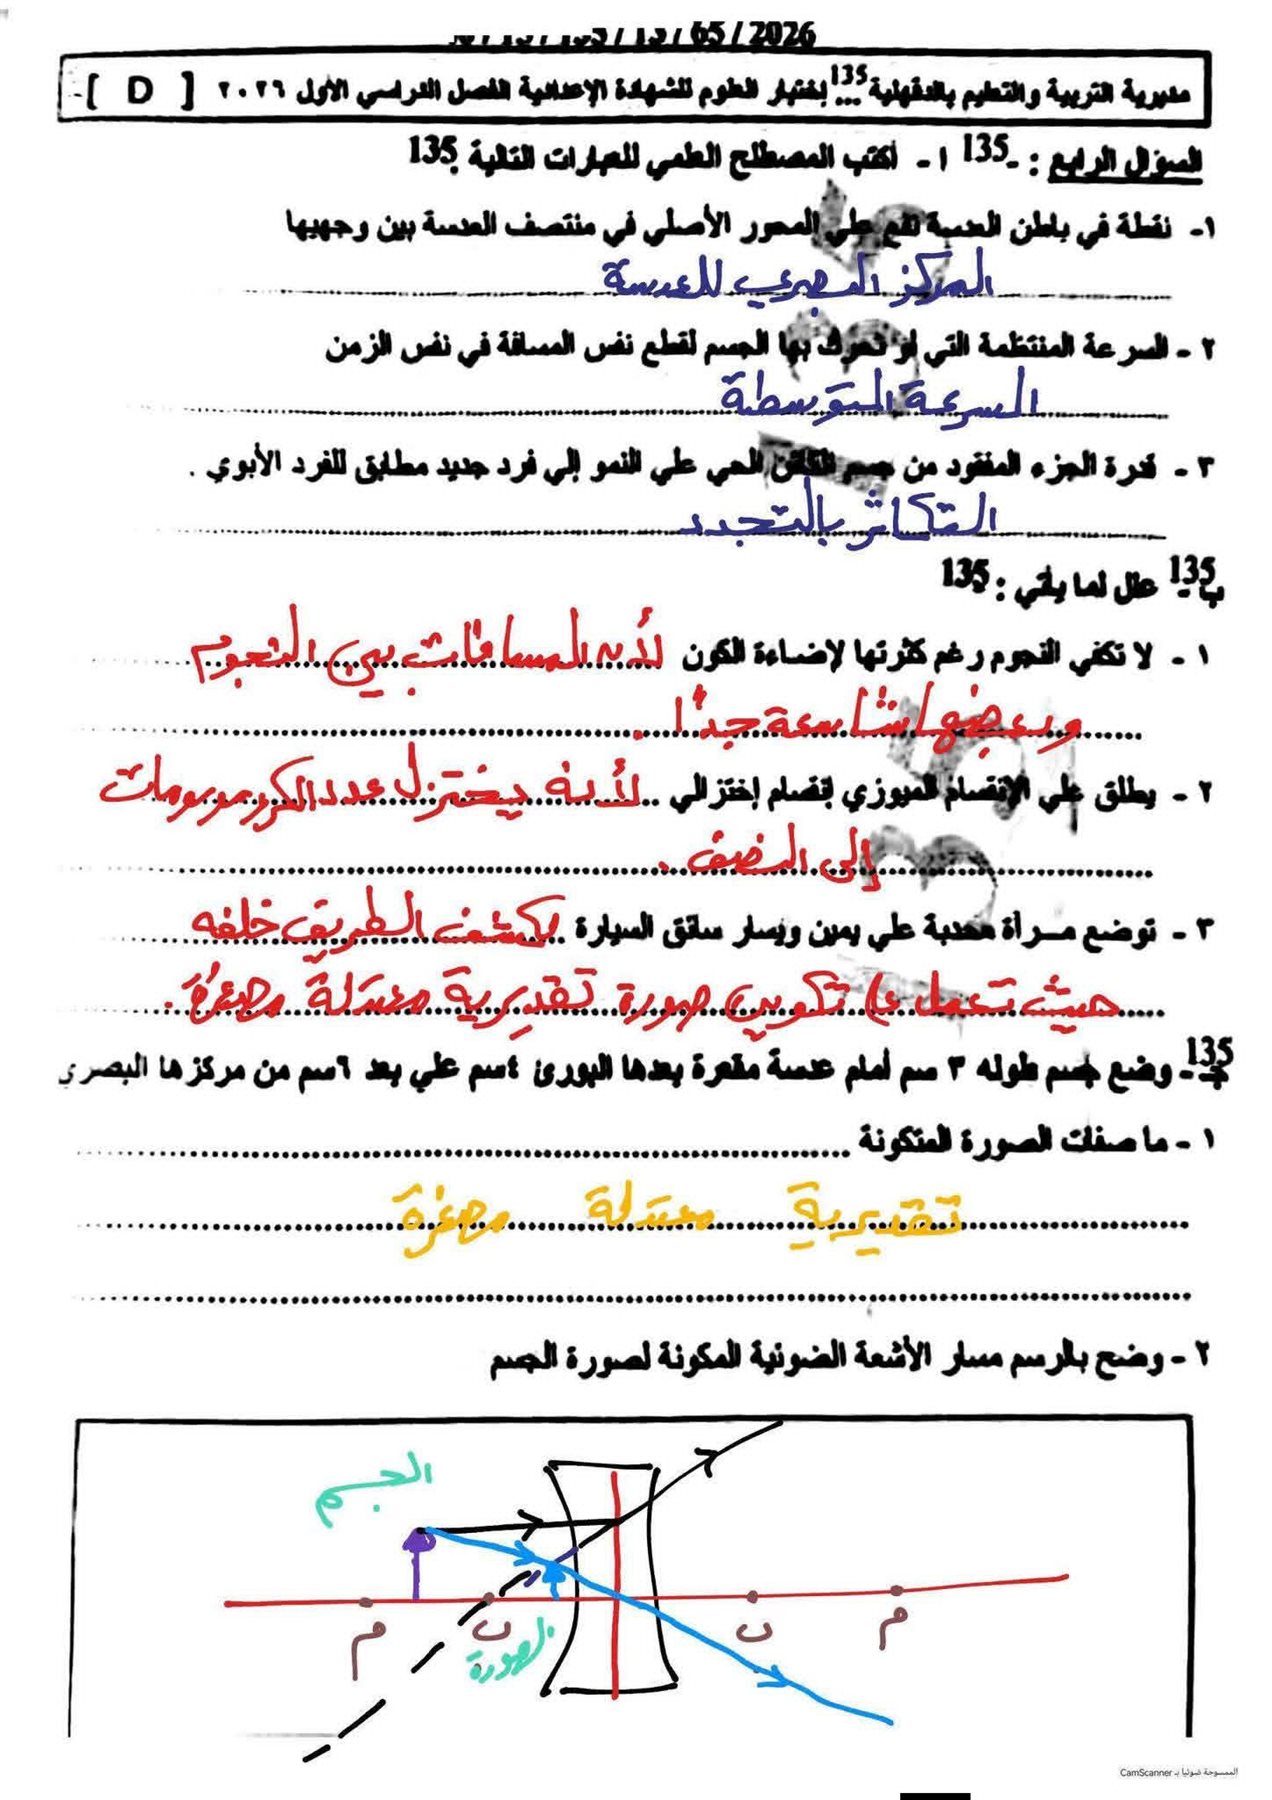 135 / 13 / 65 / 2026
مديرية التربية والتعليم بالدقهلية 135... إختبار العلوم للشهادة الإعدادية الفصل الدراسي الأول ٢٠٢٦ [ D ]
السؤال الرابع : - 135 ا - أكتب المصطلح العلمي للعبارات التالية 135
١- نقطة في باطن العدسة تقع علي المحور الأصلي في منتصف العدسة بين وجهيها
المركز البصري للعدسة
٢ - السرعة المنتظمة التي لو تحرك بها الجسم لقطع نفس المسافة في نفس الزمن
السرعة المتوسطة
٣ - قدرة الجزء المفقود من جسم الكائن الحي علي النمو إلي فرد جديد مطابق للفرد الأبوي .
التكاثر بالتجدد
135 ب - علل لما يأتي : 135
١ - لا تكفي النجوم رغم كثرتها لإضاءة الكون لأن المسافات بين النجوم
وبعضها شاسعة جدًا .
٢ - يطلق علي الإنقسام الميوزي إنقسام إختزالي لأنه يختزل عدد الكروموسومات
إلى النصف .
٣ - توضع مرأة محدبة علي يمين ويسار سائق السيارة لكشف الطريق خلفه
حيث تعمل على تكوين صورة تقديرية معتدلة مصغرة .
135 جـ - وضع جسم طوله ٣ سم أمام عدسة مقعرة بعدها البورئ ٤سم علي بعد ٦سم من مركزها البصري
١ - ما صفات الصورة المتكونة
تقديرية معتدلة مصغرة
٢ - وضح بالرسم مسار الأشعة الضوئية المكونة لصورة الجسم
الجسم
م ن ن م
الصورة
الممسوحة ضوئيا بـ CamScanner